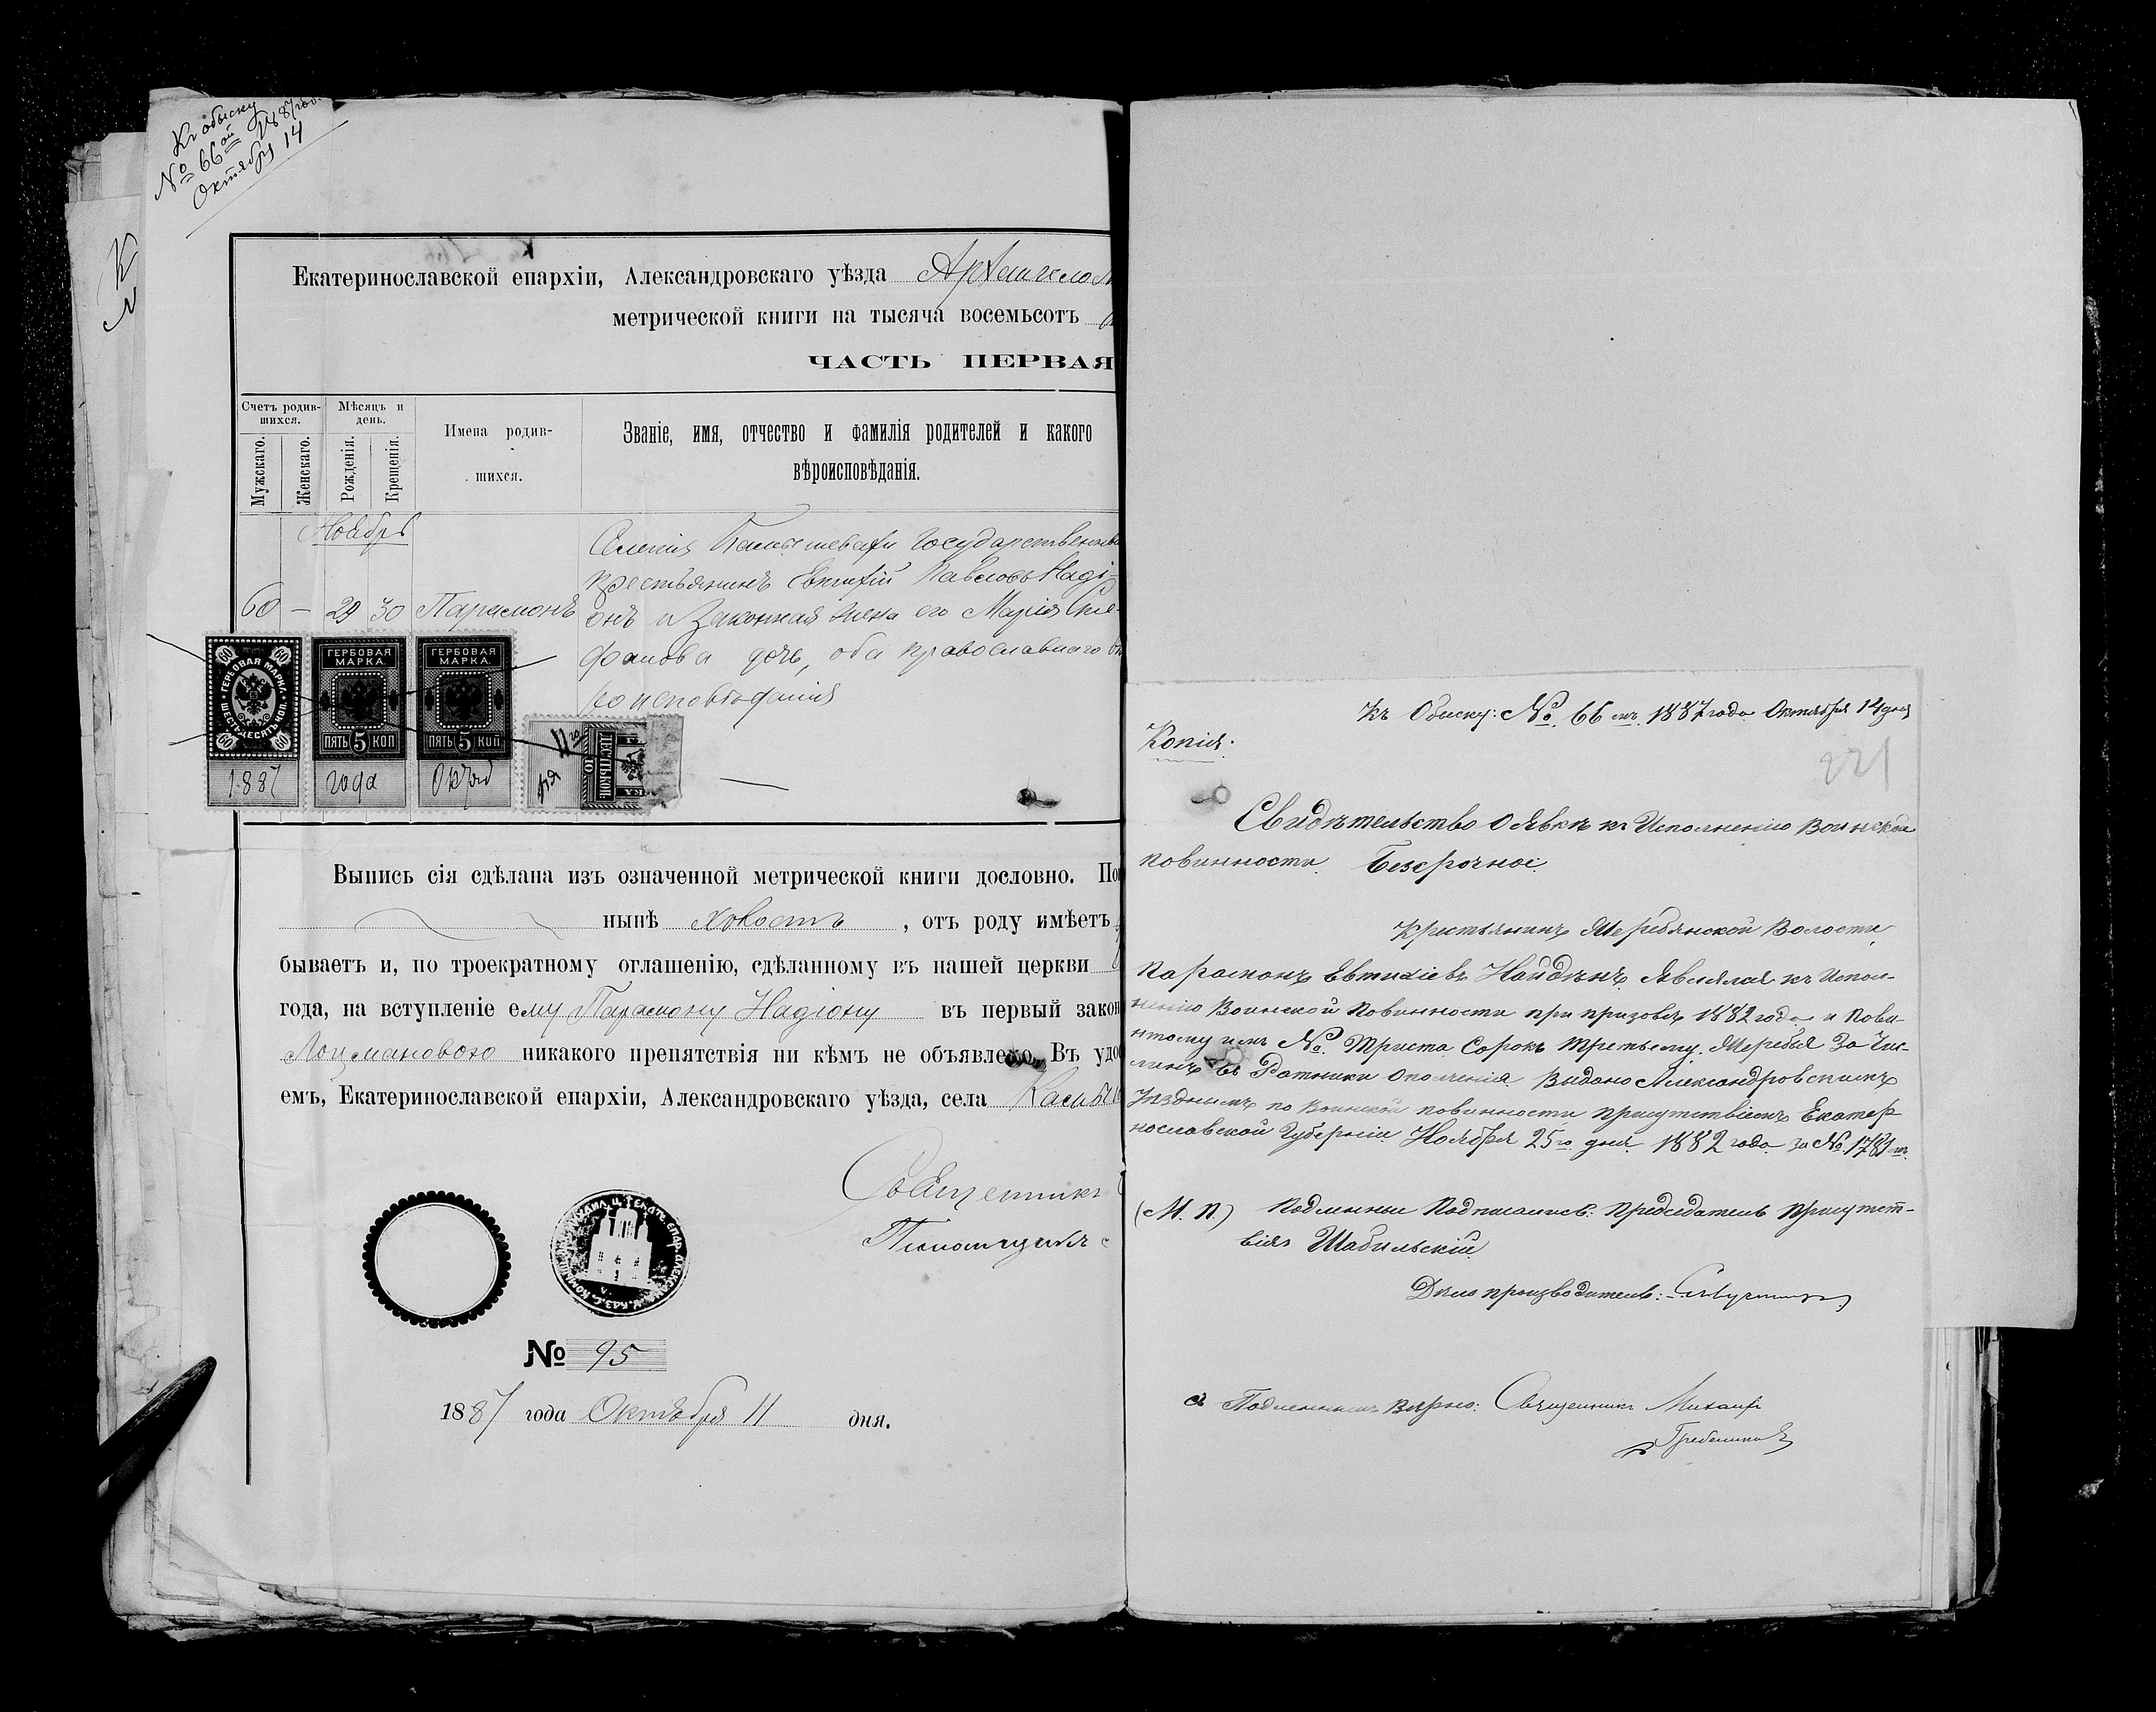 Къ обыску
№ 66ой 1887 год.
Октября 14
Екатеринославской епархіи, Александровскаго уѣзда
метрической книги на тысяча восемьсотъ
ЧАСТЬ ПЕРВАЯ
Счетъ родив-
шихся.
Мѣсяцъ и
день.
Имена родив-
шихся.
Званіе, имя, отчество и фамилія родителей и какого
вѣроисповѣданія.
Мужскаго.
Женскаго.
Рожденія.
Крещенія.
Ноябрь
60 — 29 30 Парамонъ
Государственный
крестьянинъ Евтихій Павловъ Наді-
онъ и Законная жена его Марія Сте-
фанова дочь, оба православнаго вѣ-
роисповѣданія
ГЕРБОВАЯ МАРКА
ШЕСТЬДЕСЯТЪ КОП.
60
1887
ГЕРБОВАЯ
МАРКА
ПЯТЬ 5 КОП
года
ГЕРБОВАЯ
МАРКА
ПЯТЬ 5 КОП
Октяб
ДЕСЯТЬ КОП.
10
11го
дня
Выпись сія сдѣлана изъ означенной метрической книги дословно.
нынѣ холостъ, отъ роду имѣетъ
бываетъ и, по троекратному оглашенію, сдѣланному въ нашей церкви
года, на вступленіе ему Парамону Надіону въ первый закон
Лоцмановою никакого препятствія ни кѣмъ не объявлено. Въ удо
емъ, Екатеринославской епархіи, Александровскаго уѣзда, села
Священникъ
№ 95
1887 года Октября 11 дня.
Къ Обыску: № 66мъ 1887 года Октября 14 дня
Копія.
221
Свидѣтельство о Явкѣ къ Исполненію Воинской
повинности. Безсрочное.
Крестьянинъ Жеребянской Волости
Парамонъ Евтихіевъ Найдѣнъ Являлся къ Испол-
ненію Воинской Повинности при призывѣ 1882 года и По вы-
нтому имъ № Триста Сорокъ Третьему. Жеребья За Чис-
ленъ въ Ратники Ополченія Видано Александровскимъ
Уѣзднымъ по Воинской повинности присутствіемъ Екатер-
нославской Губерніи Ноября 25го дня 1882 года за № 1781мъ.
(М. П.) Подлинные Подписались: Предсѣдатель Присутст-
вія Шабельскій
Дѣлопроизводитель:
Съ Подлиннымъ Вѣрно: Священникъ Михаилъ
Гребенников